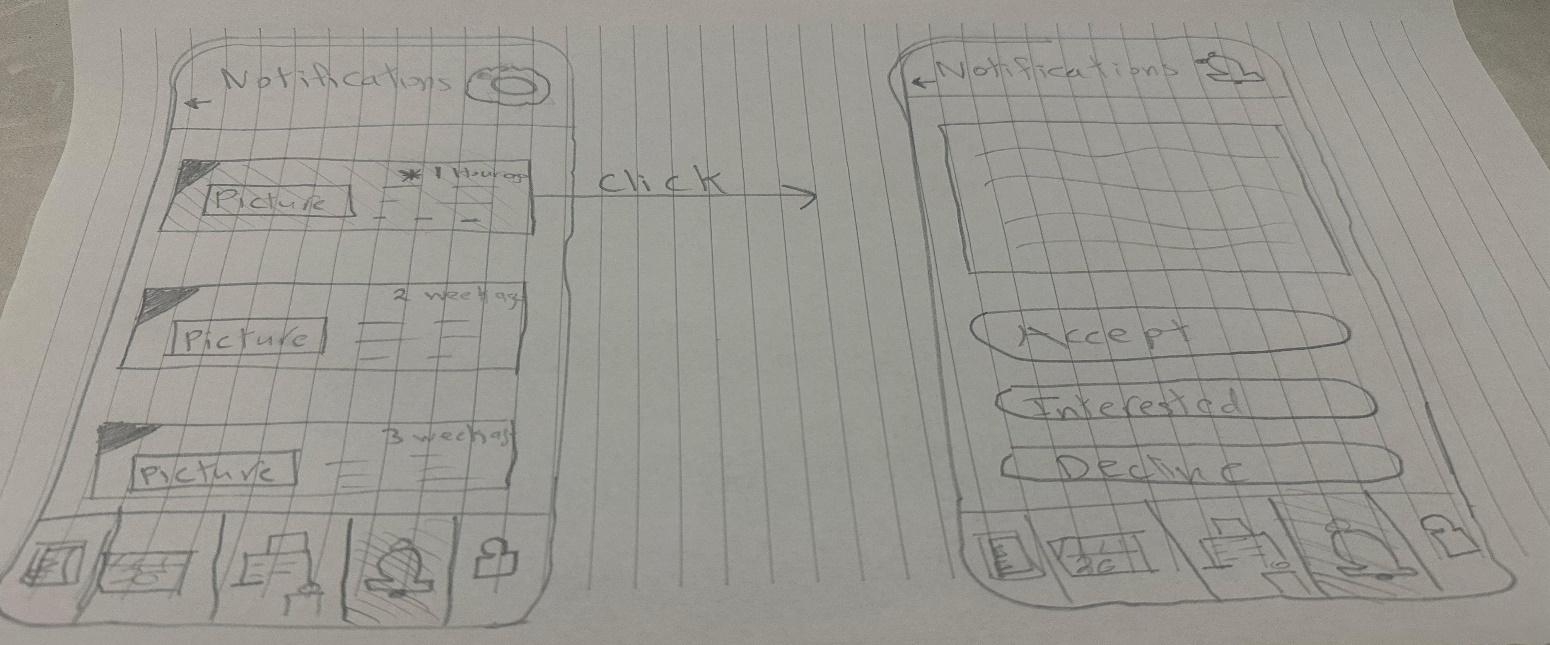 Notifications
* 1 Hour ago
Picture
2 week ago
Picture
3 week ago
Picture
click
Notifications
Accept
Interested
Decline